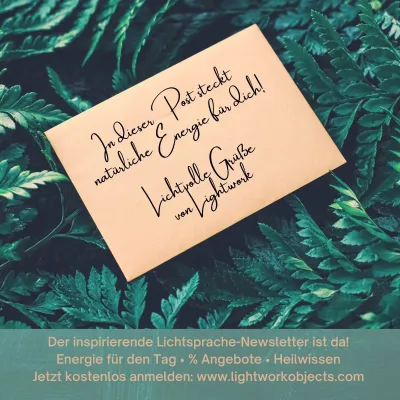 In dieser Post steckt
natürliche Energie für dich!
Lichtvolle Grüße
von Lightwork
Der inspirierende Lichtsprache-Newsletter ist da!
Energie für den Tag • % Angebote • Heilwissen
Jetzt kostenlos anmelden: www.lightworkobjects.com